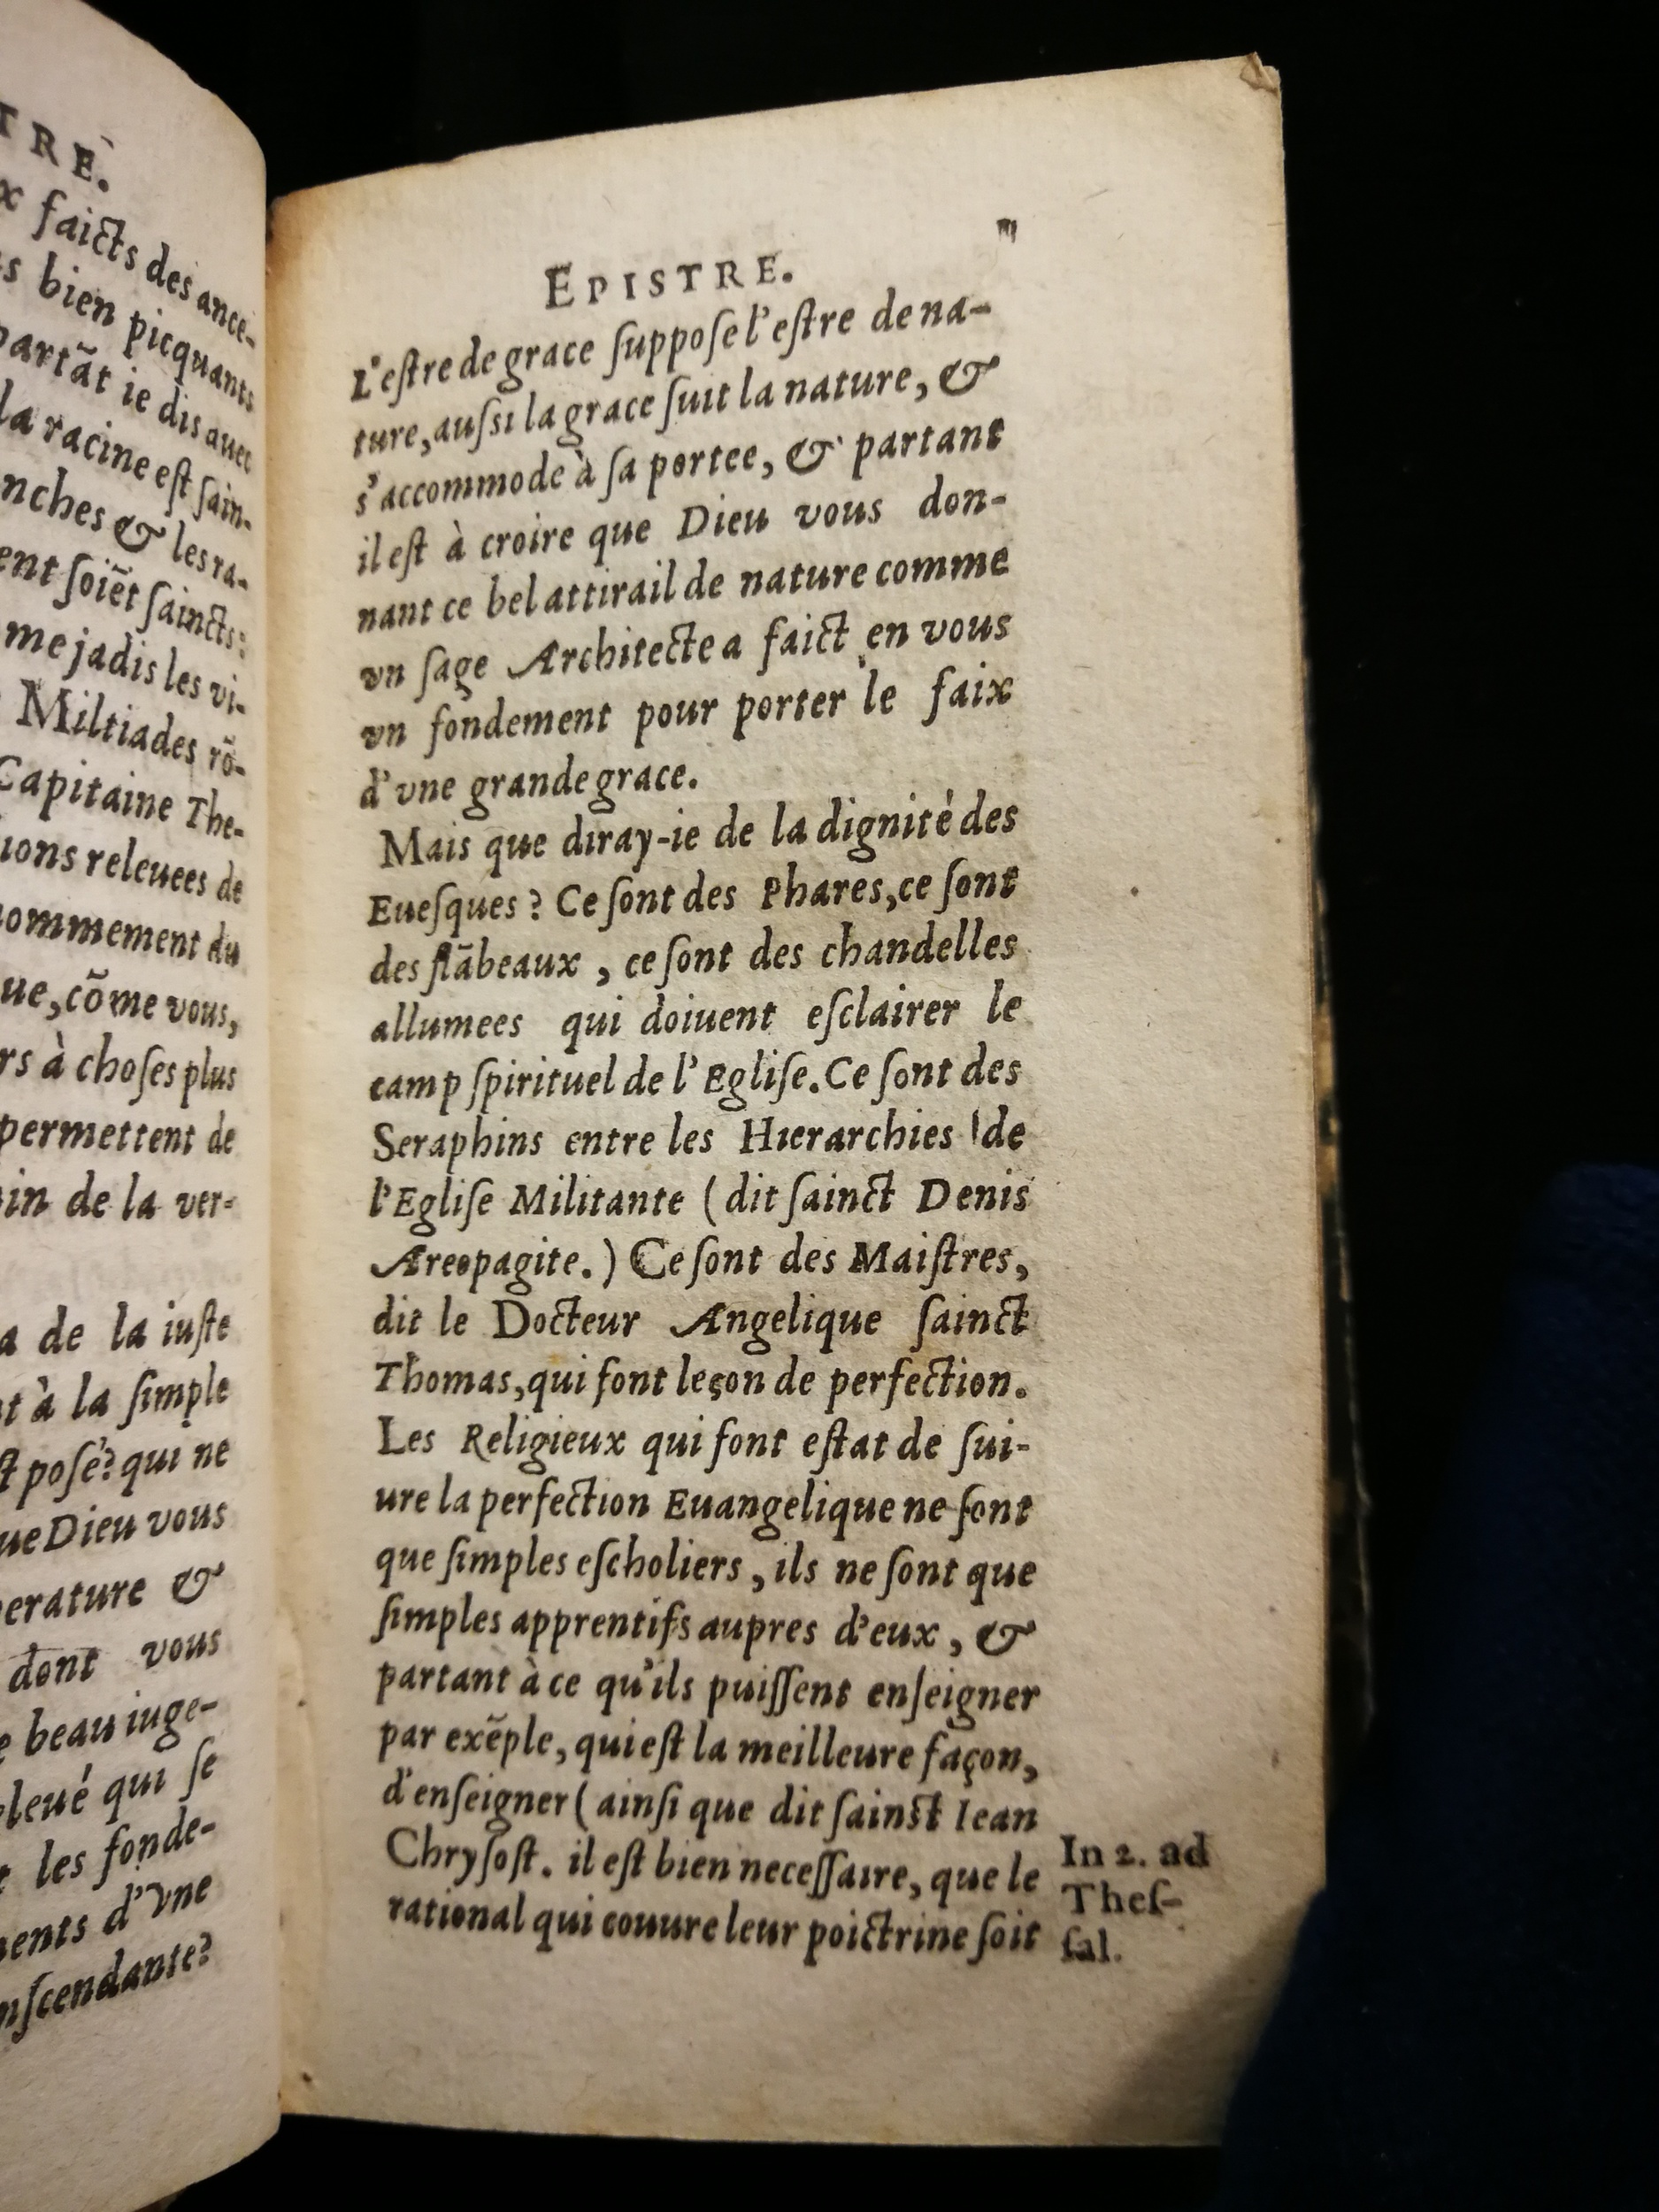 TRE.
x faicts des ance-
s bien picquants
partãt ie dis auec
la racine est sain-
nches & les ra-
ent soiẽt saincts:
me jadis les vi-
Miltiades rõ-
Capitaine The-
ions releuees de
nommement du
ue, cõme vous,
rs à choses plus
permettent de
in de la ver-
a de la iuste
t à la simple
st posé? qui ne
ue Dieu vous
erature &
dont vous
e beau iuge-
leué qui se
t les fonde-
ments d'vne
nscendante?
EPISTRE.
L'estre de grace suppose l'estre de na-
ture, aussi la grace suit la nature, &
s'accommode à sa portee, & partant
il est à croire que Dieu vous don-
nant ce bel attirail de nature comme
vn sage Architecte a faict en vous
vn fondement pour porter le faix
d'vne grande grace.
Mais que diray-ie de la dignité des
Euesques? Ce sont des Phares, ce sont
des flãbeaux, ce sont des chandelles
allumees qui doiuent esclairer le
camp spirituel de l'Eglise. Ce sont des
Seraphins entre les Hierarchies de
l'Eglise Militante (dit sainct Denis
Areopagite.) Ce sont des Maistres,
dit le Docteur Angelique sainct
Thomas, qui font leçon de perfection.
Les Religieux qui font estat de sui-
ure la perfection Euangelique ne sont
que simples escholiers, ils ne sont que
simples apprentifs aupres d'eux, &
partant à ce qu'ils puissent enseigner
par exẽple, qui est la meilleure façon,
d'enseigner (ainsi que dit sainct Iean
Chrysost. il est bien necessaire, que le
rational qui couure leur poictrine soit
In 2. ad
Thes-
sal.